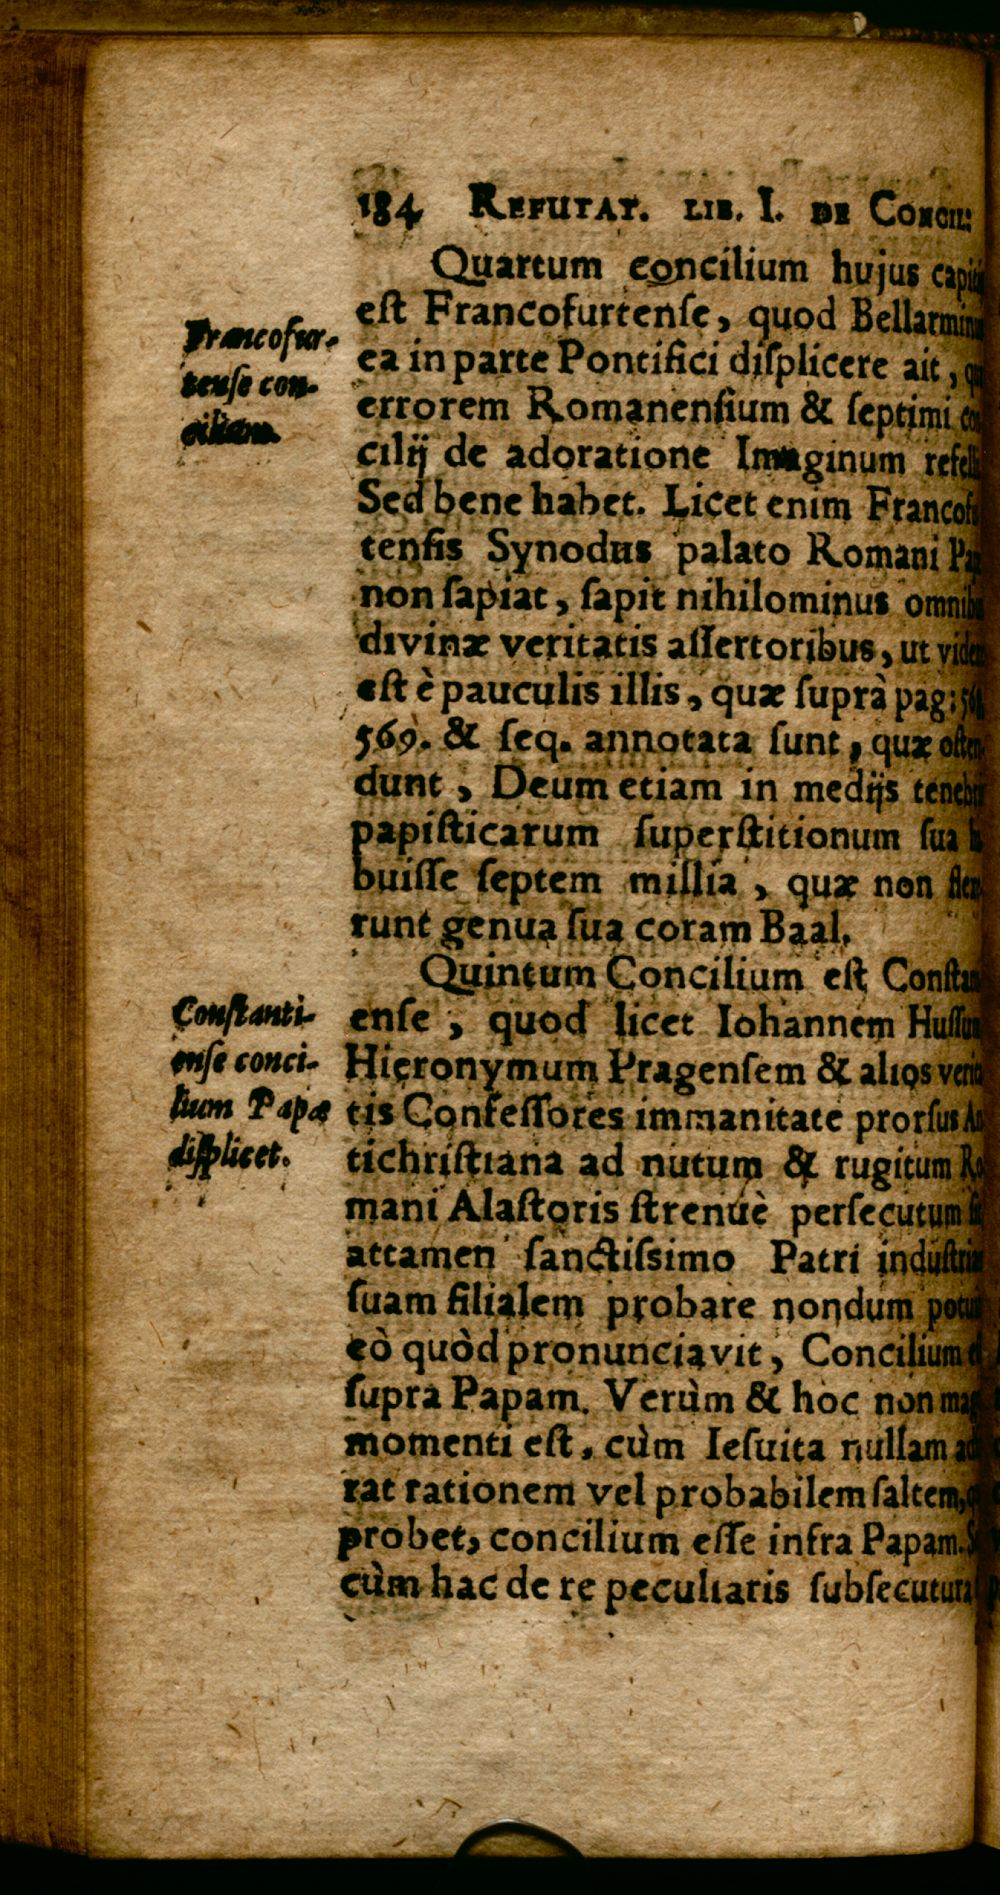 184 REFUTAT. LIB. I. DE CONCIL:
Quartum concilium hujus
eſt Francofurtenſe, quod
ea in parte Pontifici diſplicere ait,
errorem Romanenſium & ſeptimi
cilij de adoratione Imaginum
Sed bene habet. Licet enim
tenſis Synodus palato Romani
non ſapiat, ſapit nihilominus
divinæ veritatis aſſertoribus, ut
eſt è pauculis illis, quæ ſuprà pag:
569. & ſeq. annotata ſunt, quæ
dunt, Deum etiam in medijs
papiſticarum ſuperſtitionum ſua
buiſſe ſeptem millia, quæ non
runt genua ſua coram Baal.
Quintum Concilium eſt
enſe, quod licet Iohannem
Hieronymum Pragenſem & alios
tis Confeſſores immanitate prorſus
tichriſtiana ad nutum & rugitum
mani Alaſtoris ſtrenuè perſecutum
attamen ſanctiſsimo Patri
ſuam filialem probare nondum
eò quòd pronunciavit, Concilium
ſupra Papam. Verùm & hoc non
momenti eſt, cùm Ieſuita nullam
rat rationem vel probabilem ſaltem,
probet, concilium eſſe infra Papam.
cùm hac de re peculiaris ſubſecutura
Francofur-
tenſe con-
cilium.
Conſtanti-
enſe conci-
lium Papæ
diſplicet.